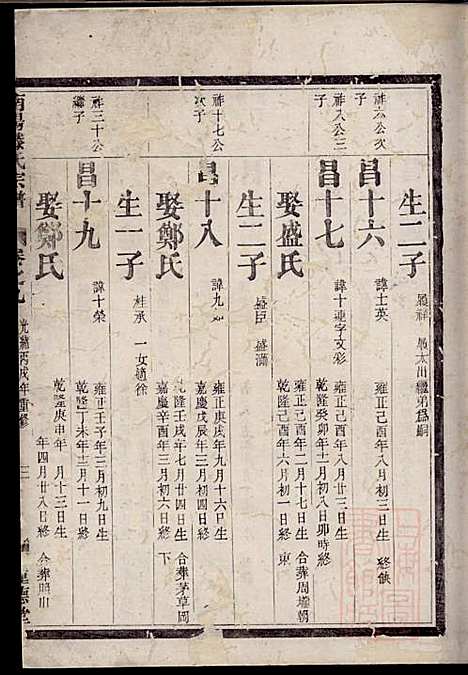 生二子 晟祥 晟太出繼弟爲嗣
祚六公次子
昌十六 諱士英 雍正己酉年八月初三日生 終缺
祚八公三子
昌十七 諱十連字文彩 雍正己酉年八月廿三日生
乾隆癸卯年十二月初八日卯時終
娶盛氏 乾隆己酉年二月十七日生 合葬周壠朝東
乾隆己酉年六月初一日終
生二子 盛臣 盛滿
祚十七公次子
昌十八 諱九 雍正庚戌年九月十六日生
嘉慶戊辰年三月初四日終
娶鄭氏 乾隆壬戌年七月廿四日生 合葬茅草岡下
嘉慶辛酉年三月初六日終
生一子 桂承 一女適徐
祚三十公繼子
昌十九 諱十榮 雍正壬子年三月初九日生
乾隆丁未年三月十一日終
娶鄭氏 乾隆庚申年 月十三日生
年四月廿八日終 合葬照山
南陽滕氏宗譜 卷之九 光緒丙戌年重修